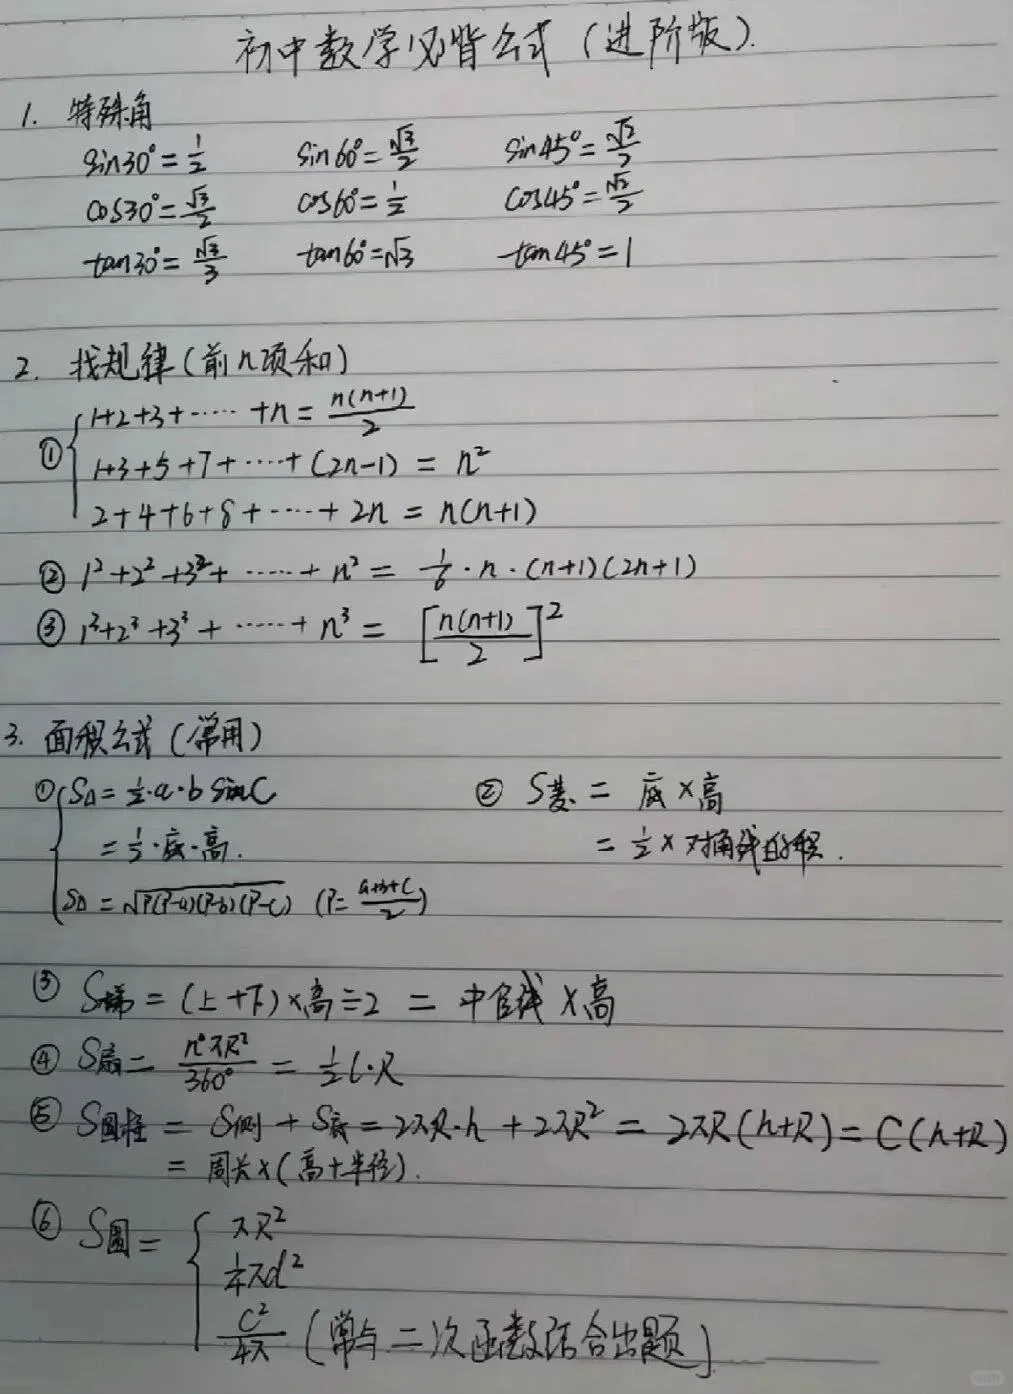 初中数学必背公式（进阶版）.
1. 特殊角
sin30°=1/2 sin60°=√3/2 sin45°=√2/2
cos30°=√3/2 cos60°=1/2 cos45°=√2/2
tan30°=√3/3 tan60°=√3 tan45°=1
2. 找规律(前n项和)
① { 1+2+3+……+n=n(n+1)/2
1+3+5+7+……+(2n-1)=n²
2+4+6+8+……+2n=n(n+1)
② 1²+2²+3²+……+n²=1/6·n·(n+1)(2n+1)
③ 1³+2³+3³+……+n³=[n(n+1)/2]²
3. 面积公式(常用)
① { S△=1/2·a·b sinC ② S菱.=底×高
=1/2·底·高. =1/2×对角线的积.
S△=√P(P-a)(P-b)(P-c) (P=a+b+c/2)
③ S梯=(上+下)×高÷2=中位线×高
④ S扇=n°πR²/360°=1/2 l·R
⑤ S圆柱=S侧+S底=2πR·h+2πR²=2πR(h+R)=C(h+R)
=周长×(高+半径).
⑥ S圆= { πR²
1/4πd²
C²/4π (常与二次函数结合出题)